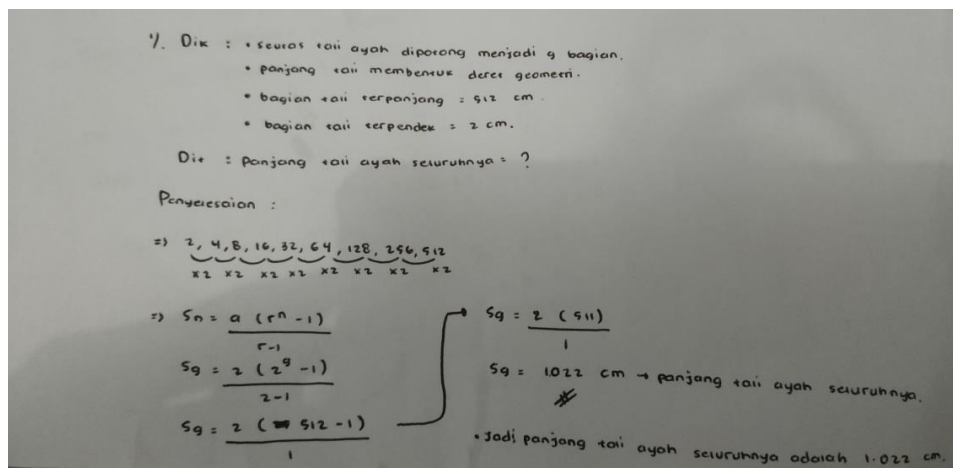 1. Dik : • seutas tali ayah dipotong menjadi 9 bagian.
• panjang tali membentuk deret geometri.
• bagian tali terpanjang = 512 cm
• bagian tali terpendek = 2 cm.
Dit : Panjang tali ayah seluruhnya = ?
Penyelesaian :
=> 2, 4, 8, 16, 32, 64, 128, 256, 512
x2 x2 x2 x2 x2 x2 x2 x2
=> Sn = a (rⁿ - 1)
r-1
S9 = 2 (2⁹ - 1)
2-1
S9 = 2 (512 - 1)
1
S9 = 2 (511)
1
S9 = 1.022 cm → panjang tali ayah seluruhnya.
• Jadi panjang tali ayah seluruhnya adalah 1.022 cm.